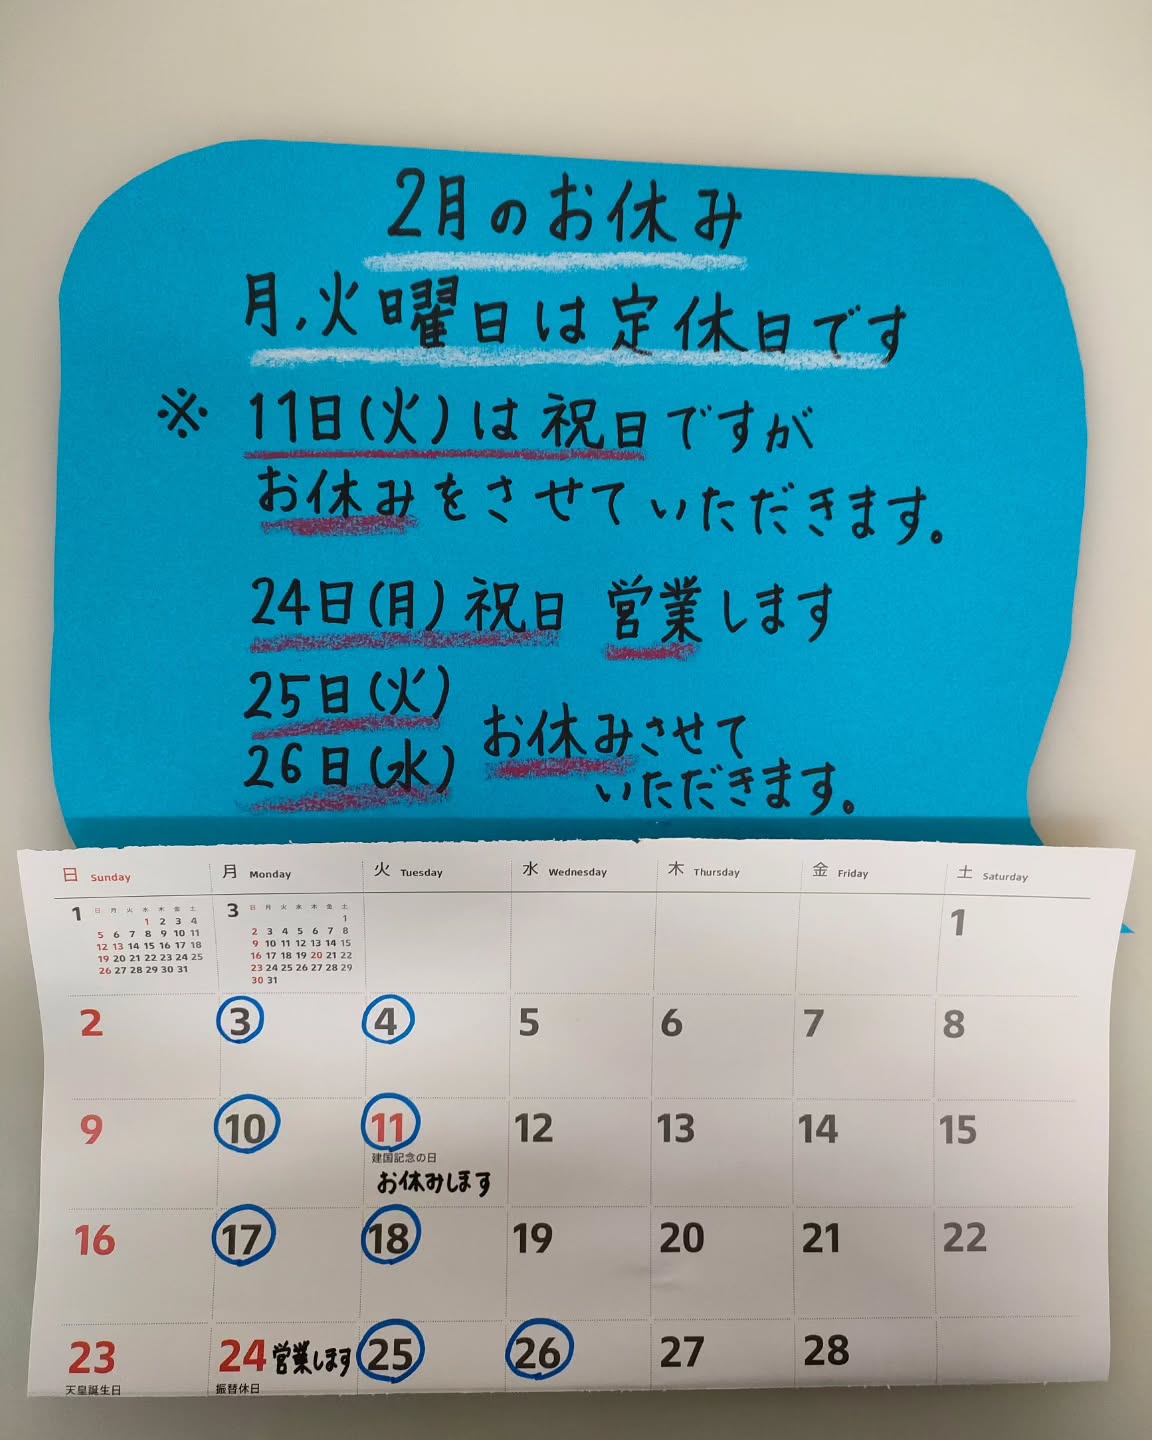 2月のお休み
月,火曜日は定休日です
※ 11日(火)は祝日ですが
お休みをさせていただきます。
24日(月)祝日 営業します
25日(火)
26日(水) お休みさせて
いただきます。
日 Sunday 月 Monday 火 Tuesday 水 Wednesday 木 Thursday 金 Friday 土 Saturday
1 日 月 火 水 木 金 土
1 2 3 4
5 6 7 8 9 10 11
12 13 14 15 16 17 18
19 20 21 22 23 24 25
26 27 28 29 30 31
3 日 月 火 水 木 金 土
1
2 3 4 5 6 7 8
9 10 11 12 13 14 15
16 17 18 19 20 21 22
23 24 25 26 27 28 29
30 31
1
2 3 4 5 6 7 8
9 10 11 12 13 14 15
建国記念の日
お休みします
16 17 18 19 20 21 22
23 24 営業します 25 26 27 28
天皇誕生日 振替休日